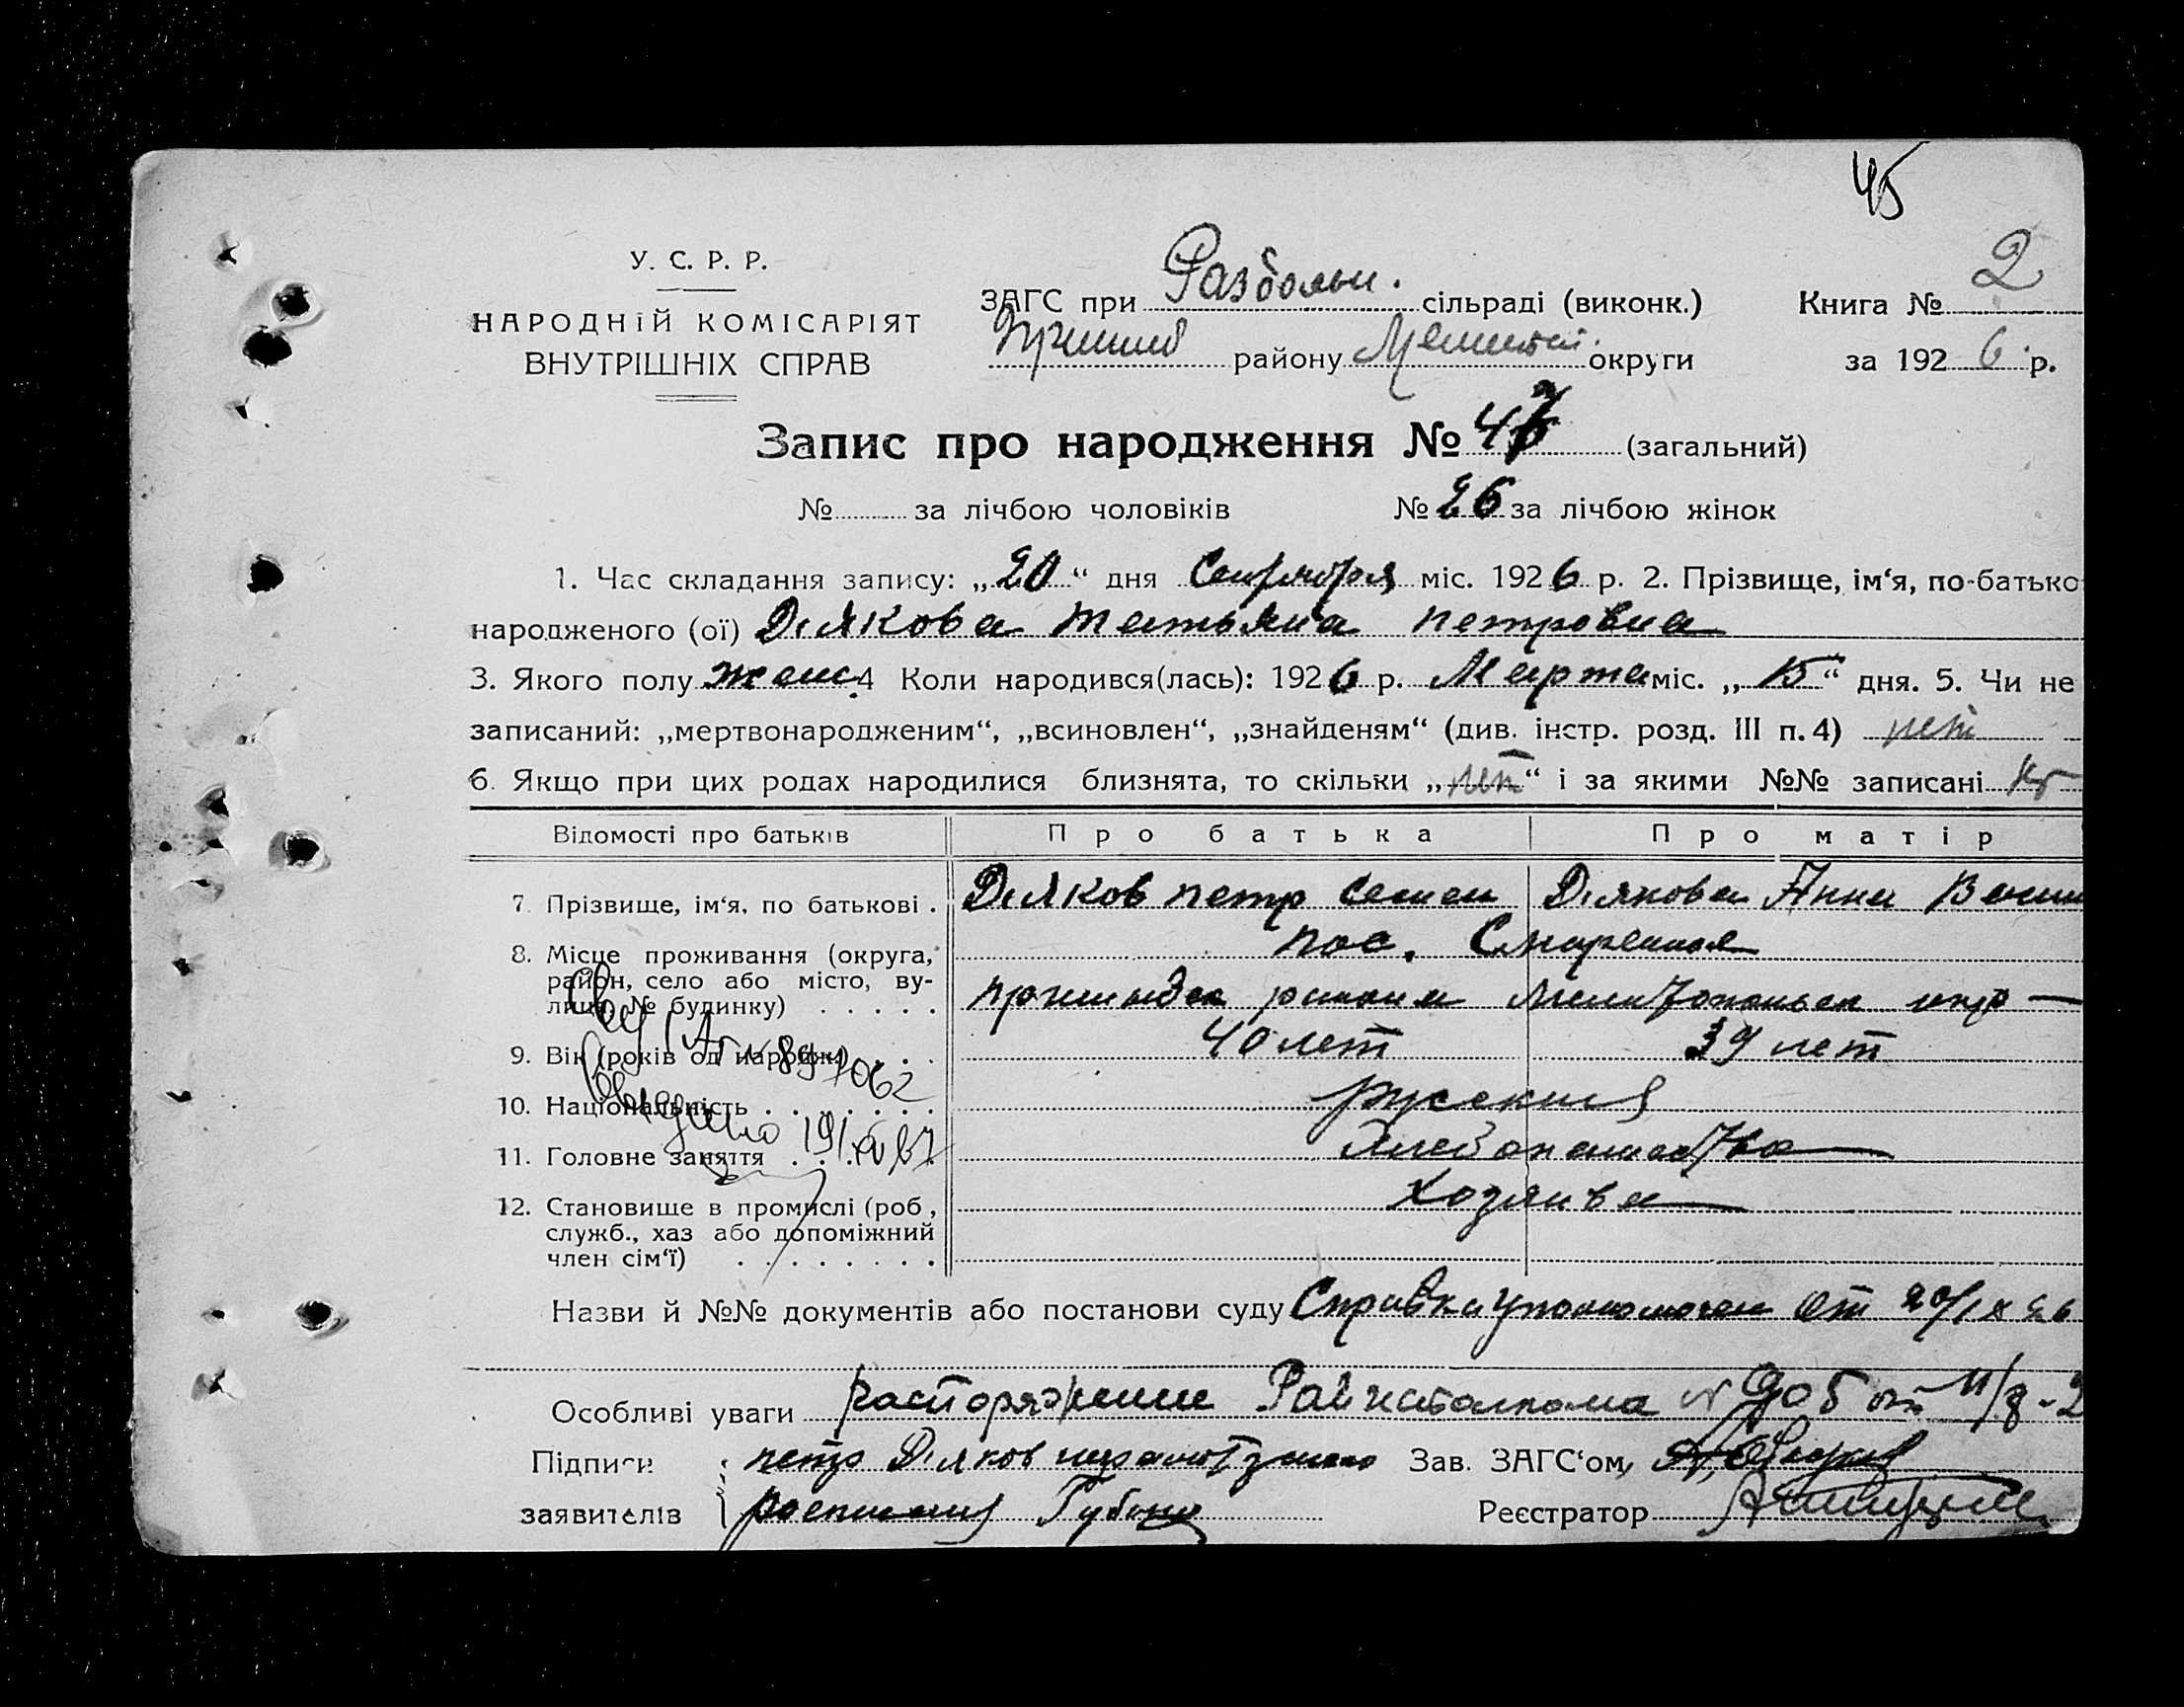 45
У. С. Р. Р.
НАРОДНІЙ КОМІСАРІЯТ
ВНУТРІШНІХ СПРАВ
ЗАГС при сільраді (виконк.)
Книга № 2
Пришиб району округи
за 1926 р.
Запис про народження № 47 (загальний)
№ за лічбою чоловіків № 26 за лічбою жінок
1. Час складання запису: „20“ дня Сентября міс. 1926 р. 2. Прізвище, ім‘я, по-батько
народженого (ої) Діякова Татьяна Петровна
3. Якого полу женс. 4 Коли народився(лась): 1926 р. Марта міс. „15“ дня. 5. Чи не
записаний: „мертвонародженим“, „всиновлен“, „знайденям“ (див. інстр. розд. III п. 4) нет
6. Якщо при цих родах народилися близнята, то скільки „нет“ і за якими №№ записані
Відомості про батьків Про батька Про матір
7. Прізвище, ім‘я, по батькові . Діяков Петр Семен Діякова Анна
8. Місце проживання (округа, пос.
район, село або місто, ву-
лиця, № будинку) . . . . .
9. Вік (років од народж) . . . 40 лет 39 лет
10. Національність . . . . . . . русския
11. Головне заняття . . . . . Хлебопашество
12. Становище в промислі (роб, Хозяива
служб., хаз або допоміжний
член сім‘ї) . . . . . . . .
Назви й №№ документів або постанови суду Справка уполномочен от 20/IX 26
Особливі уваги распоряжение Райисполкома № 905 от
Підписи Петр Діяков Зав. ЗАГС‘ом,
заявителів Реєстратор